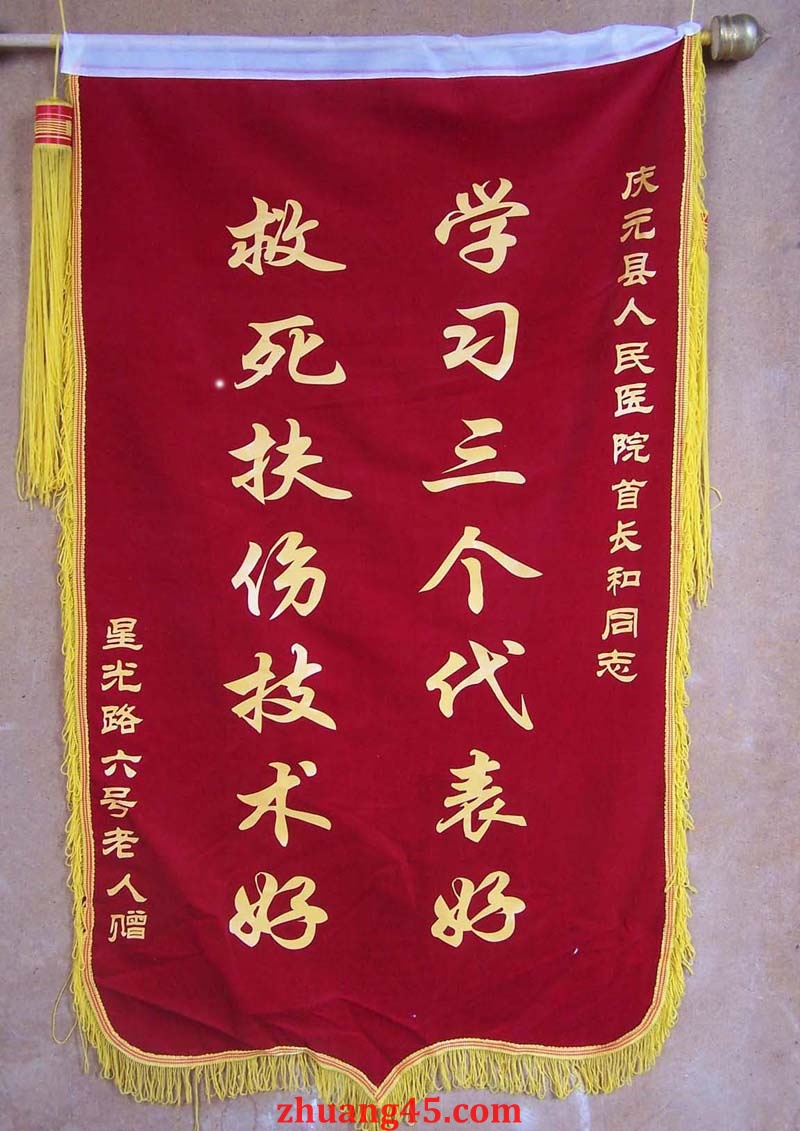 庆元县人民医院首长和同志
学习三个代表好
救死扶伤技术好
星光路六号老人赠
zhuang45.com